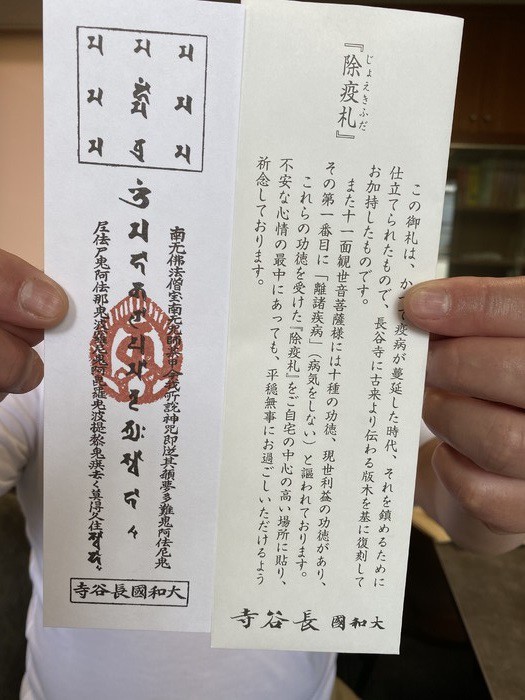 『除疫札』
じょえきふだ
この御札は、かつて疫病が蔓延した時代、それを鎮めるために
仕立てられたもので、長谷寺に古来より伝わる版木を基に復刻して
お加持したものです。
また十一面観世音菩薩様には十種の功徳、現世利益の功徳があり、
その第一番目に「離諸疾病」（病気をしない）と謳われております。
これらの功徳を受けた『除疫札』をご自宅の中心の高い場所に貼り、
不安な心情の最中にあっても、平穏無事にお過ごしいただけるよう
祈念しております。
大和國 長谷寺
南无佛法僧宝南无 我所説神咒即 難鬼阿佉尼鬼
尼佉尸鬼阿佉那鬼波 鬼阿毘羅鬼波提梨鬼 去々莫得久住
大和國長谷寺